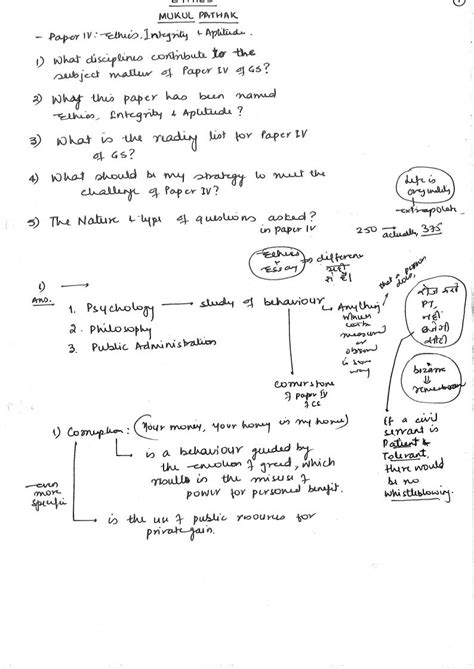 ETHICS
MUKUL PATHAK
- Paper IV: Ethics, Integrity & Aptitude.
1) What disciplines contribute to the
subject matter of Paper IV of GS?
2) Why this paper has been named
Ethics, Integrity & Aptitude?
3) What is the reading list for Paper IV
of GS?
4) What should be my strategy to meet the
challenge of Paper IV?
Life is
5) The Nature & type of questions asked?
in paper IV
250 → actually, 375
Ethics
+
Essay
⇒ different
नहीं
1) →
Ans.
1. Psychology → study of behaviour
2. Philosophy
3. Public Administration
Anything
which
can be
measured
or
observed
in some
way
that a person
does,
PT
नहीं
bizarre
⇓
cornerstone
of paper IV
of GS
1) Corruption: (Your money, your honey in my home)
is a behaviour guided by
the emotion of greed, which
results in the misuse of
power for personal benefit.
—even
more
specific
is the use of public resources for
private gain.
If a civil
servant is
Patient &
Tolerant,
there would
be no
Whistleblowing.